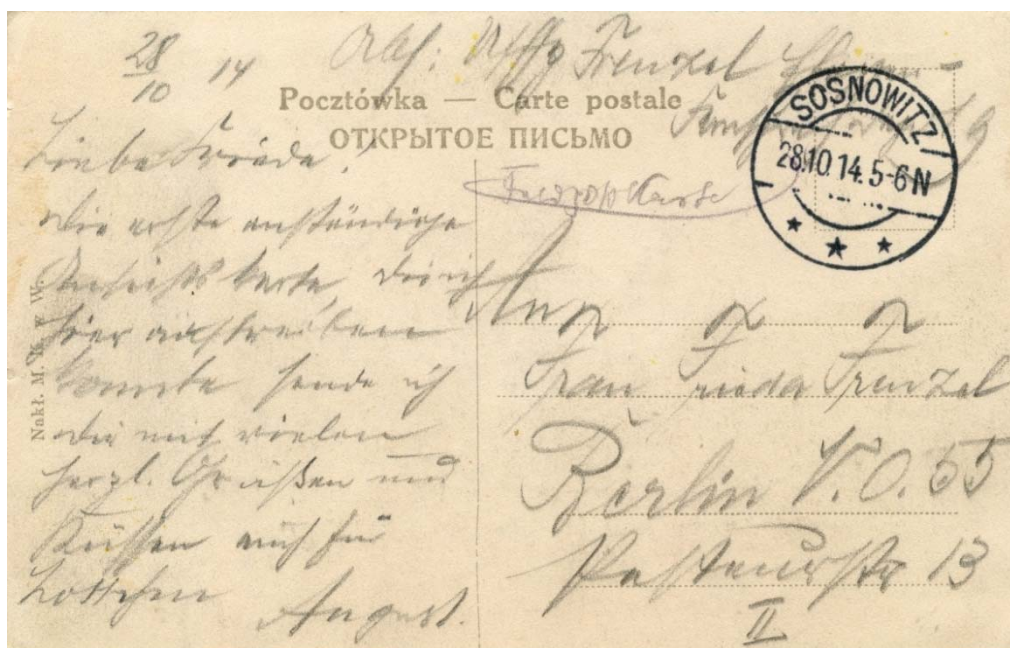 28/10 14
Abs: Uffz Frenzel
Pocztówka — Carte postale
ОТКРЫТОЕ ПИСЬМО
SOSNOWITZ
28.10.14.5-6N
Feldpostkarte
Liebe Frieda!
Die erste anständige
Ansichtskarte, die ich
hier auftreiben
konnte sende ich
Dir mit vielen
herzl. Grüßen und
Küssen auch für
Lottchen
August.
An
Frau Frieda Frenzel
Berlin N.O. 55
Pasteurstr 13
II
Nakł. M. K. F. W.